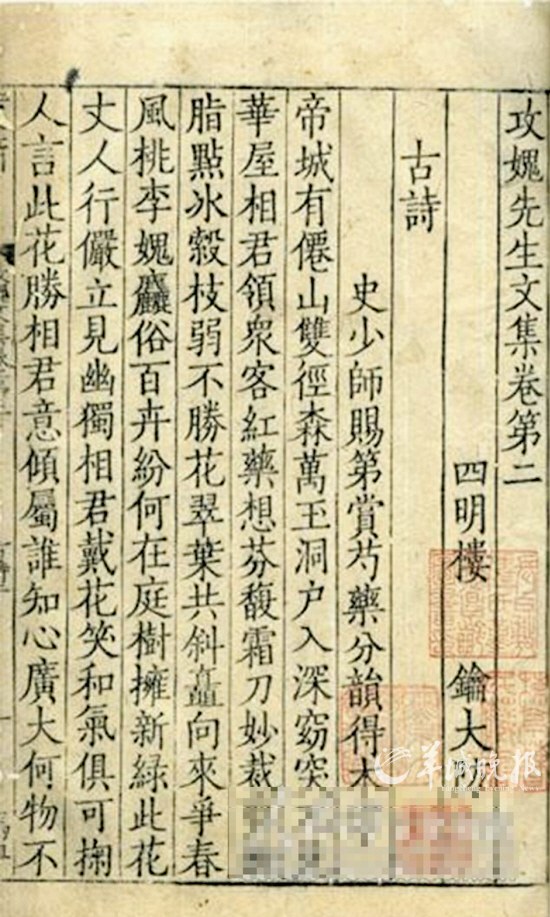 攻媿先生文集卷第二
四明樓 鑰大防
古詩
史少師賜第賞芍藥分韻得木
帝城有僊山雙徑森萬玉洞户入深窈突
華屋相君領衆客紅藥想芬馥霜刀妙裁
脂點冰縠枝弱不勝花翠葉共斜矗向來爭春
風桃李媿麤俗百卉紛何在庭樹擁新緑此花
丈人行儼立見幽獨相君戴花笑和氣俱可掬
人言此花勝相君意傾屬誰知心廣大何物不
羊城晚报